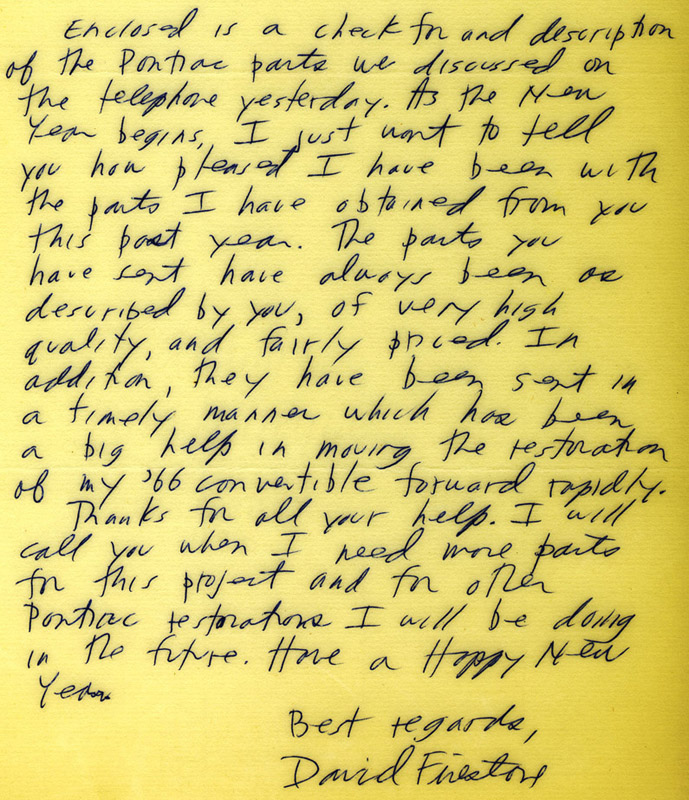 Enclosed is a check for and description
of the Pontiac parts we discussed on
the telephone yesterday. As the New
Year begins, I just want to tell
you how pleased I have been with
the parts I have obtained from you
this past year. The parts you
have sent have always been as
described by you, of very high
quality, and fairly priced. In
addition, they have been sent in
a timely manner which has been
a big help in moving the restoration
of my '66 convertible forward rapidly.
Thanks for all your help. I will
call you when I need more parts
for this project and for other
Pontiac restorations I will be doing
in the future. Have a Happy New
Year
Best regards,
David Firestone